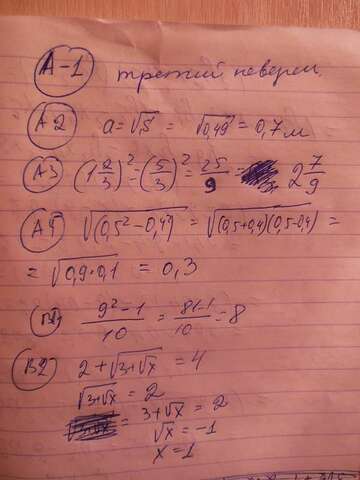 А-1 третий неверен
А2 a=√S = √0,49 = 0,7 м
А3 (1 2/3)² = (5/3)² = 25/9 = 2 7/9
А4 √(0,5²-0,4²) = √(0,5+0,4)(0,5-0,4) =
= √0,9·0,1 = 0,3
В1 9²-1/10 = 81-1/10 = 8
В2 2+√3+√x = 4
√3+√x = 2
= 3+√x = 2
√x = -1
x=1